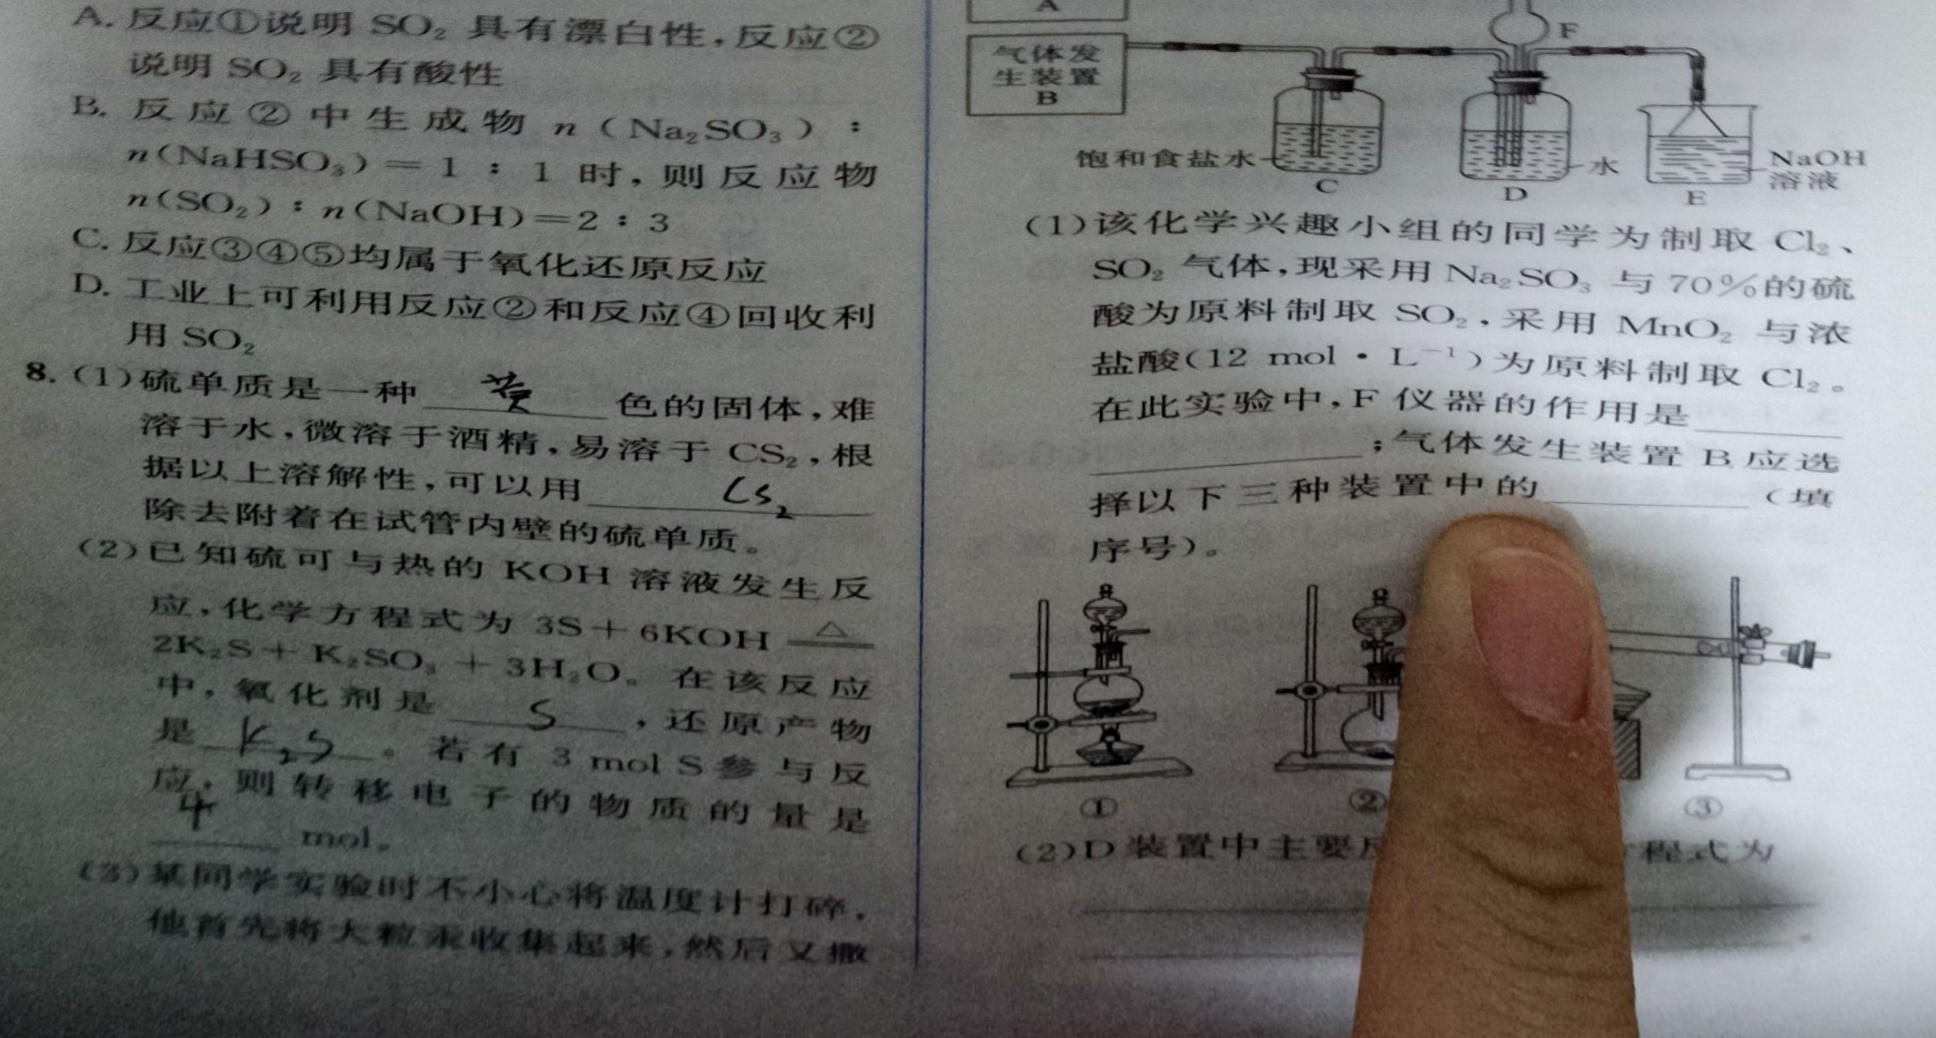 A. 反应①说明 SO₂ 具有漂白性,反应②
说明 SO₂ 具有酸性
B. 反应②中生成物 n(Na₂SO₃):
n(NaHSO₃)=1:1 时,则反应物
n(SO₂):n(NaOH)=2:3
C. 反应③④⑤均属于氧化还原反应
D. 工业上可利用反应②和反应④回收利
用 SO₂
8. (1)硫单质是一种 黄 色的固体,难
溶于水,微溶于酒精,易溶于 CS₂,根
据以上溶解性,可以用 CS₂
除去附着在试管内壁的硫单质。
(2)已知硫可与热的 KOH 溶液发生反
应,化学方程式为 3S+6KOH ≜
2K₂S+K₂SO₃+3H₂O。在该反应
中,氧化剂是 S ,还原产物
是 K₂S 。若有 3 mol S 参与反
应,则转移电子的物质的量是
4 mol。
(3)某同学实验时不小心将温度计打碎,
他首先将大粒汞收集起来,然后又撒
A
气体发
生装置
B
F
饱和食盐水
C
D
水
E
NaOH
溶液
(1)该化学兴趣小组的同学为制取 Cl₂、
SO₂ 气体,现采用 Na₂SO₃ 与 70%的硫
酸为原料制取 SO₂,采用 MnO₂ 与浓
盐酸(12 mol·L⁻¹)为原料制取 Cl₂。
在此实验中,F 仪器的作用是
;气体发生装置 B 应选
择以下三种装置中的 (填
序号)。
① ② ③
(2)D 装置中主要 程式为